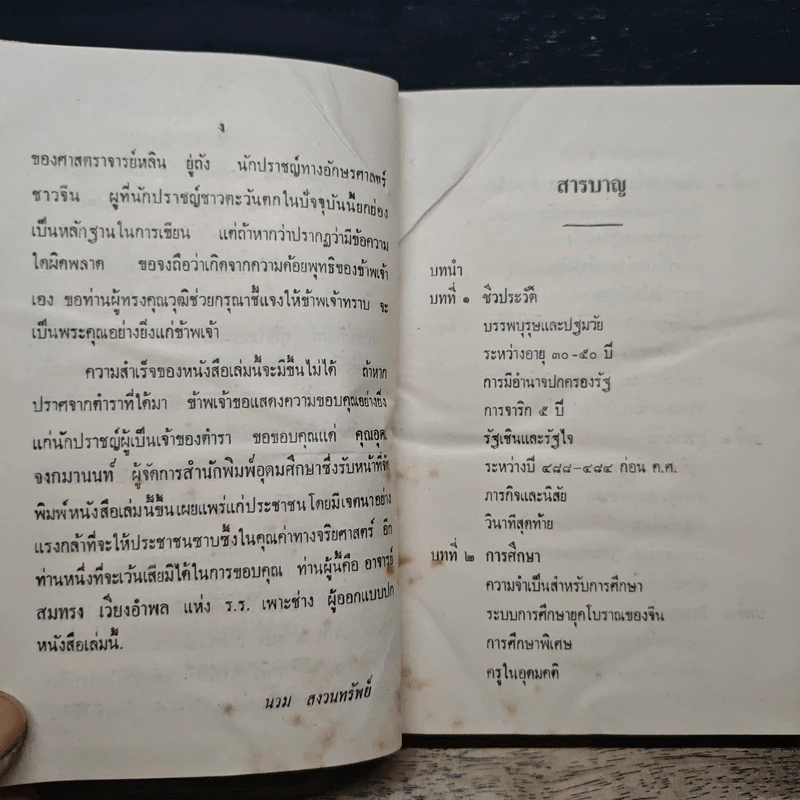 ง
ของศาสตราจารย์หลิน ยู่ถัง นักปราชญ์ทางอักษรศาสตร์
ชาวจีน ผู้ที่นักปราชญ์ชาวตะวันตกในปัจจุบันนี้ยกย่อง
เป็นหลักฐานในการเขียน แต่ถ้าหากว่าปรากฏว่ามีข้อความ
ใดผิดพลาด ขอจงถือว่าเกิดจากความด้อยพุทธิของข้าพเจ้า
เอง ขอท่านผู้ทรงคุณวุฒิช่วยกรุณาชี้แจงให้ข้าพเจ้าทราบ จะ
เป็นพระคุณอย่างยิ่งแก่ข้าพเจ้า
ความสำเร็จของหนังสือเล่มนี้จะมีขึ้นไม่ได้ ถ้าหาก
ปราศจากตำราที่ได้มา ข้าพเจ้าขอแสดงความขอบคุณอย่างยิ่ง
แก่นักปราชญ์ผู้เป็นเจ้าของตำรา ขอขอบคุณแด่ คุณอุดม
จงกมานนท์ ผู้จัดการสำนักพิมพ์อุดมศึกษาซึ่งรับหน้าที่จัด
พิมพ์หนังสือเล่มนี้ขึ้นเผยแพร่แก่ประชาชนโดยมีเจตนาอย่าง
แรงกล้าที่จะให้ประชาชนซาบซึ้งในคุณค่าทางจริยศาสตร์ อีก
ท่านหนึ่งที่จะเว้นเสียมิได้ในการขอบคุณ ท่านผู้นี้คือ อาจารย์
สมทรง เวียงอำพล แห่ง ร.ร. เพาะช่าง ผู้ออกแบบปก
หนังสือเล่มนี้.
นวม สงวนทรัพย์
สารบาญ
บทนำ
บทที่ ๑ ชีวประวัติ
บรรพบุรุษและปฐมวัย
ระหว่างอายุ ๓๐-๕๐ ปี
การมีอำนาจปกครองรัฐ
การจาริก ๕ ปี
รัฐเชินและรัฐไจ
ระหว่างปี ๔๘๘-๔๘๔ ก่อน ค.ศ.
ภารกิจและนิสัย
วินาทีสุดท้าย
บทที่ ๒ การศึกษา
ความจำเป็นสำหรับการศึกษา
ระบบการศึกษายุคโบราณของจีน
การศึกษาพิเศษ
ครูในอุดมคติ